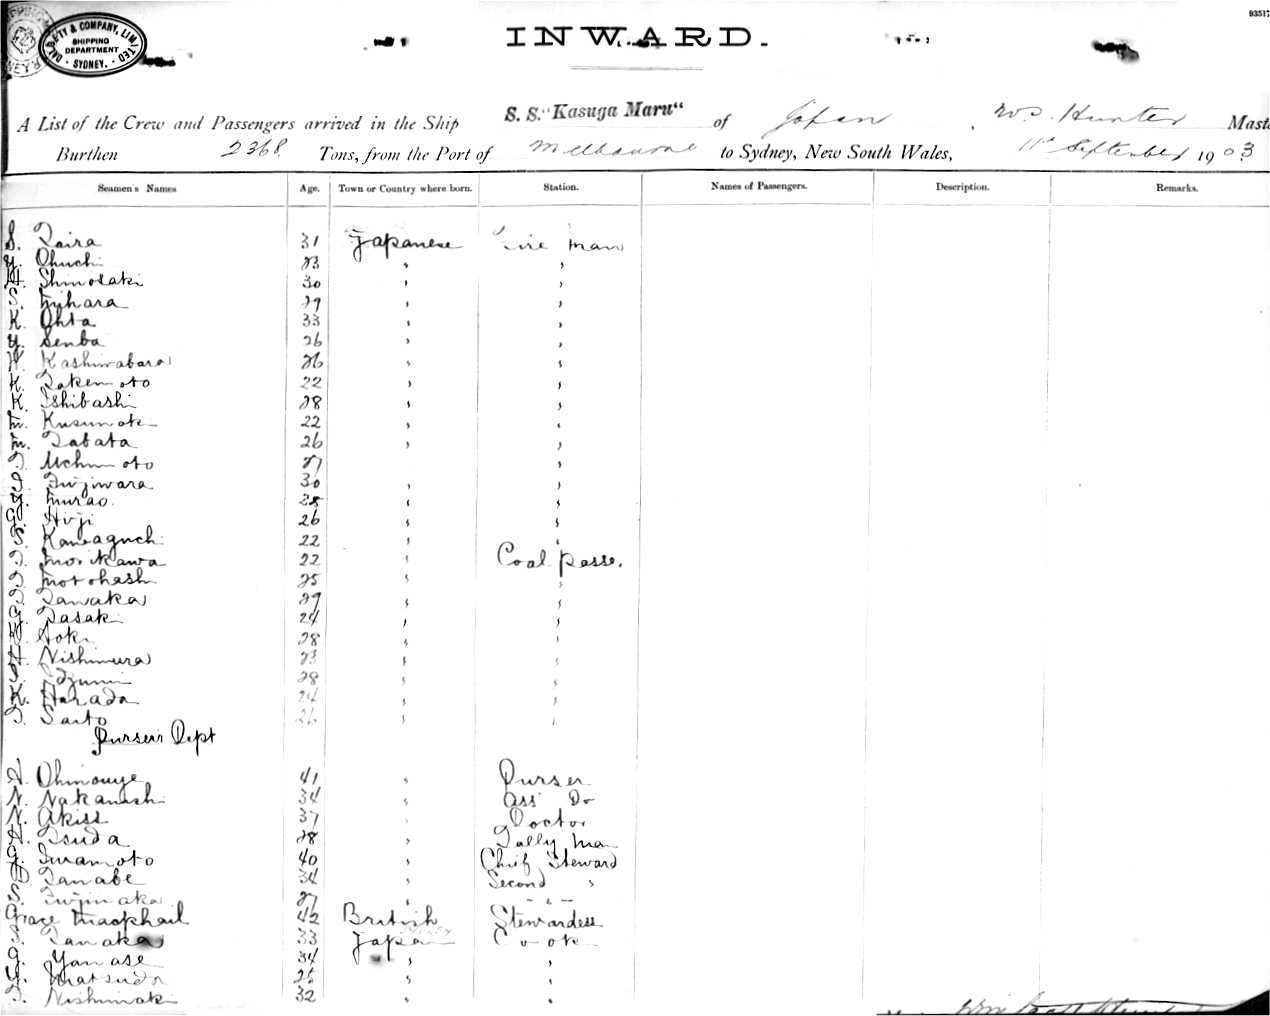 93517
DALGETY & COMPANY, LIMITED
SHIPPING DEPARTMENT
SYDNEY.
INWARD.
A List of the Crew and Passengers arrived in the Ship S. S. "Kasuga Maru" of Japan, W.S. Hunter Maste
Burthen 2368 Tons, from the Port of Melbourne to Sydney, New South Wales, 11th September 1903
Seamen's Names Age. Town or Country where born. Station. Names of Passengers. Description. Remarks.
S. Taira 31 Japanese Fire man
Y. Ohuchi 23 " "
H. Shinosaki 30 " "
S. Mihara 29 " "
K. Ohta 33 " "
Y. Senba 26 " "
K. Kashiwabara 26 " "
K. Takemoto 22 " "
K. Ishibashi 28 " "
M. Kusumoto 22 " "
M. Tabata 26 " "
T. Uchimoto 27 "
Fujiwara 30 " "
Murao 28 " "
G. Fuji 26 " "
S. Kawaguchi 22 " "
T. Morikawa 22 " Coal Passe.
T. Motohashi 25 " "
T. Tanaka 29 " "
G. Tasaki 24 " "
Aoki 28 " "
H. Nishimura 23 " "
Idzumi 28 " "
K. Harada 24 " "
T. Saito 26 " "
Purser's Dept
A. Ohmouye 41 " Purser
N. Nakanishi 34 " Ass Do
N. Akiss 37 " Doctor
H. Tsuda 28 " Tally Man
G. Imamoto 40 " Chief Steward
Tanabe 34 " Second "
S. Fujinaka 27 " " " "
Grace Macphail 42 British Stewardess
S. Tanaka 33 Japan Cook
G. Yanase 34 " "
Y. Matsuda 25 " "
T. Nishimaki 32 " "